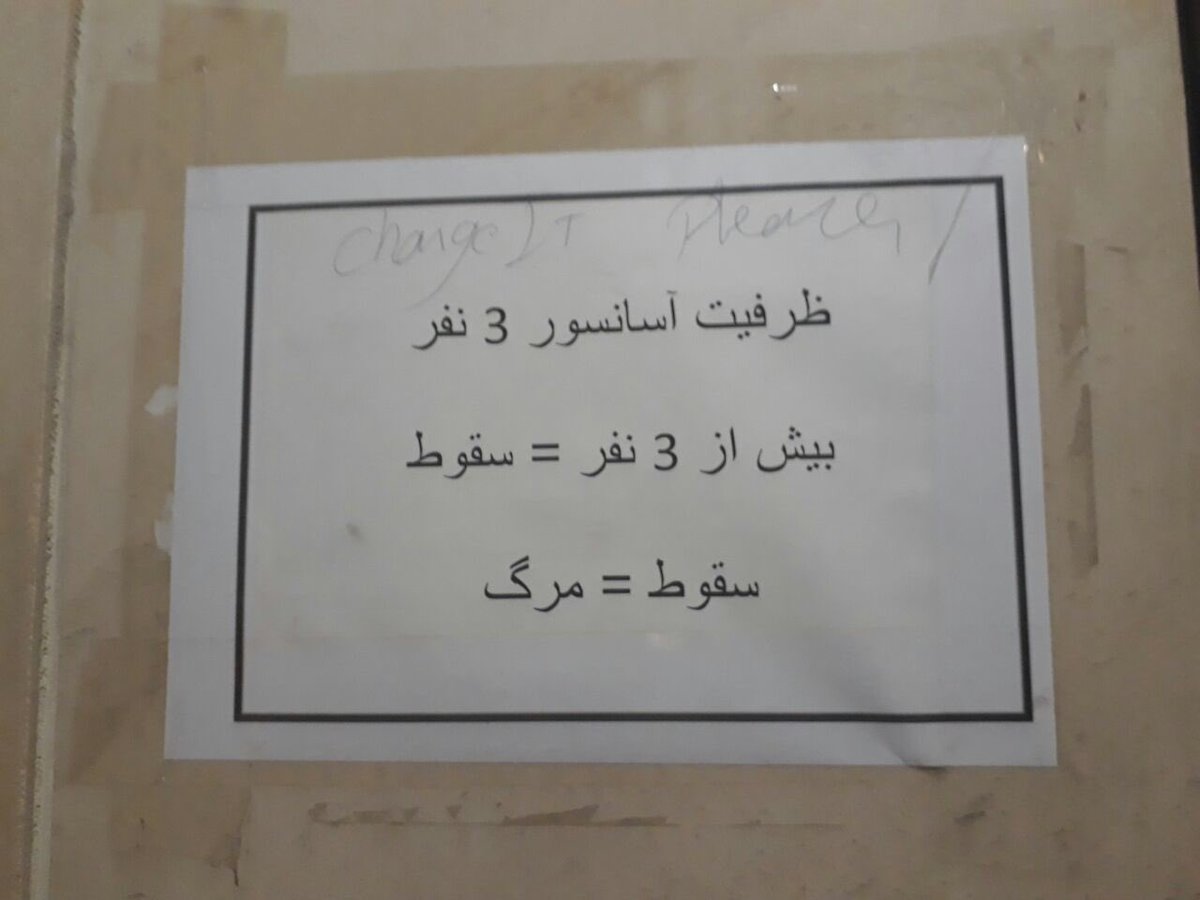 change It please
ظرفیت آسانسور 3 نفر
بیش از 3 نفر = سقوط
سقوط = مرگ